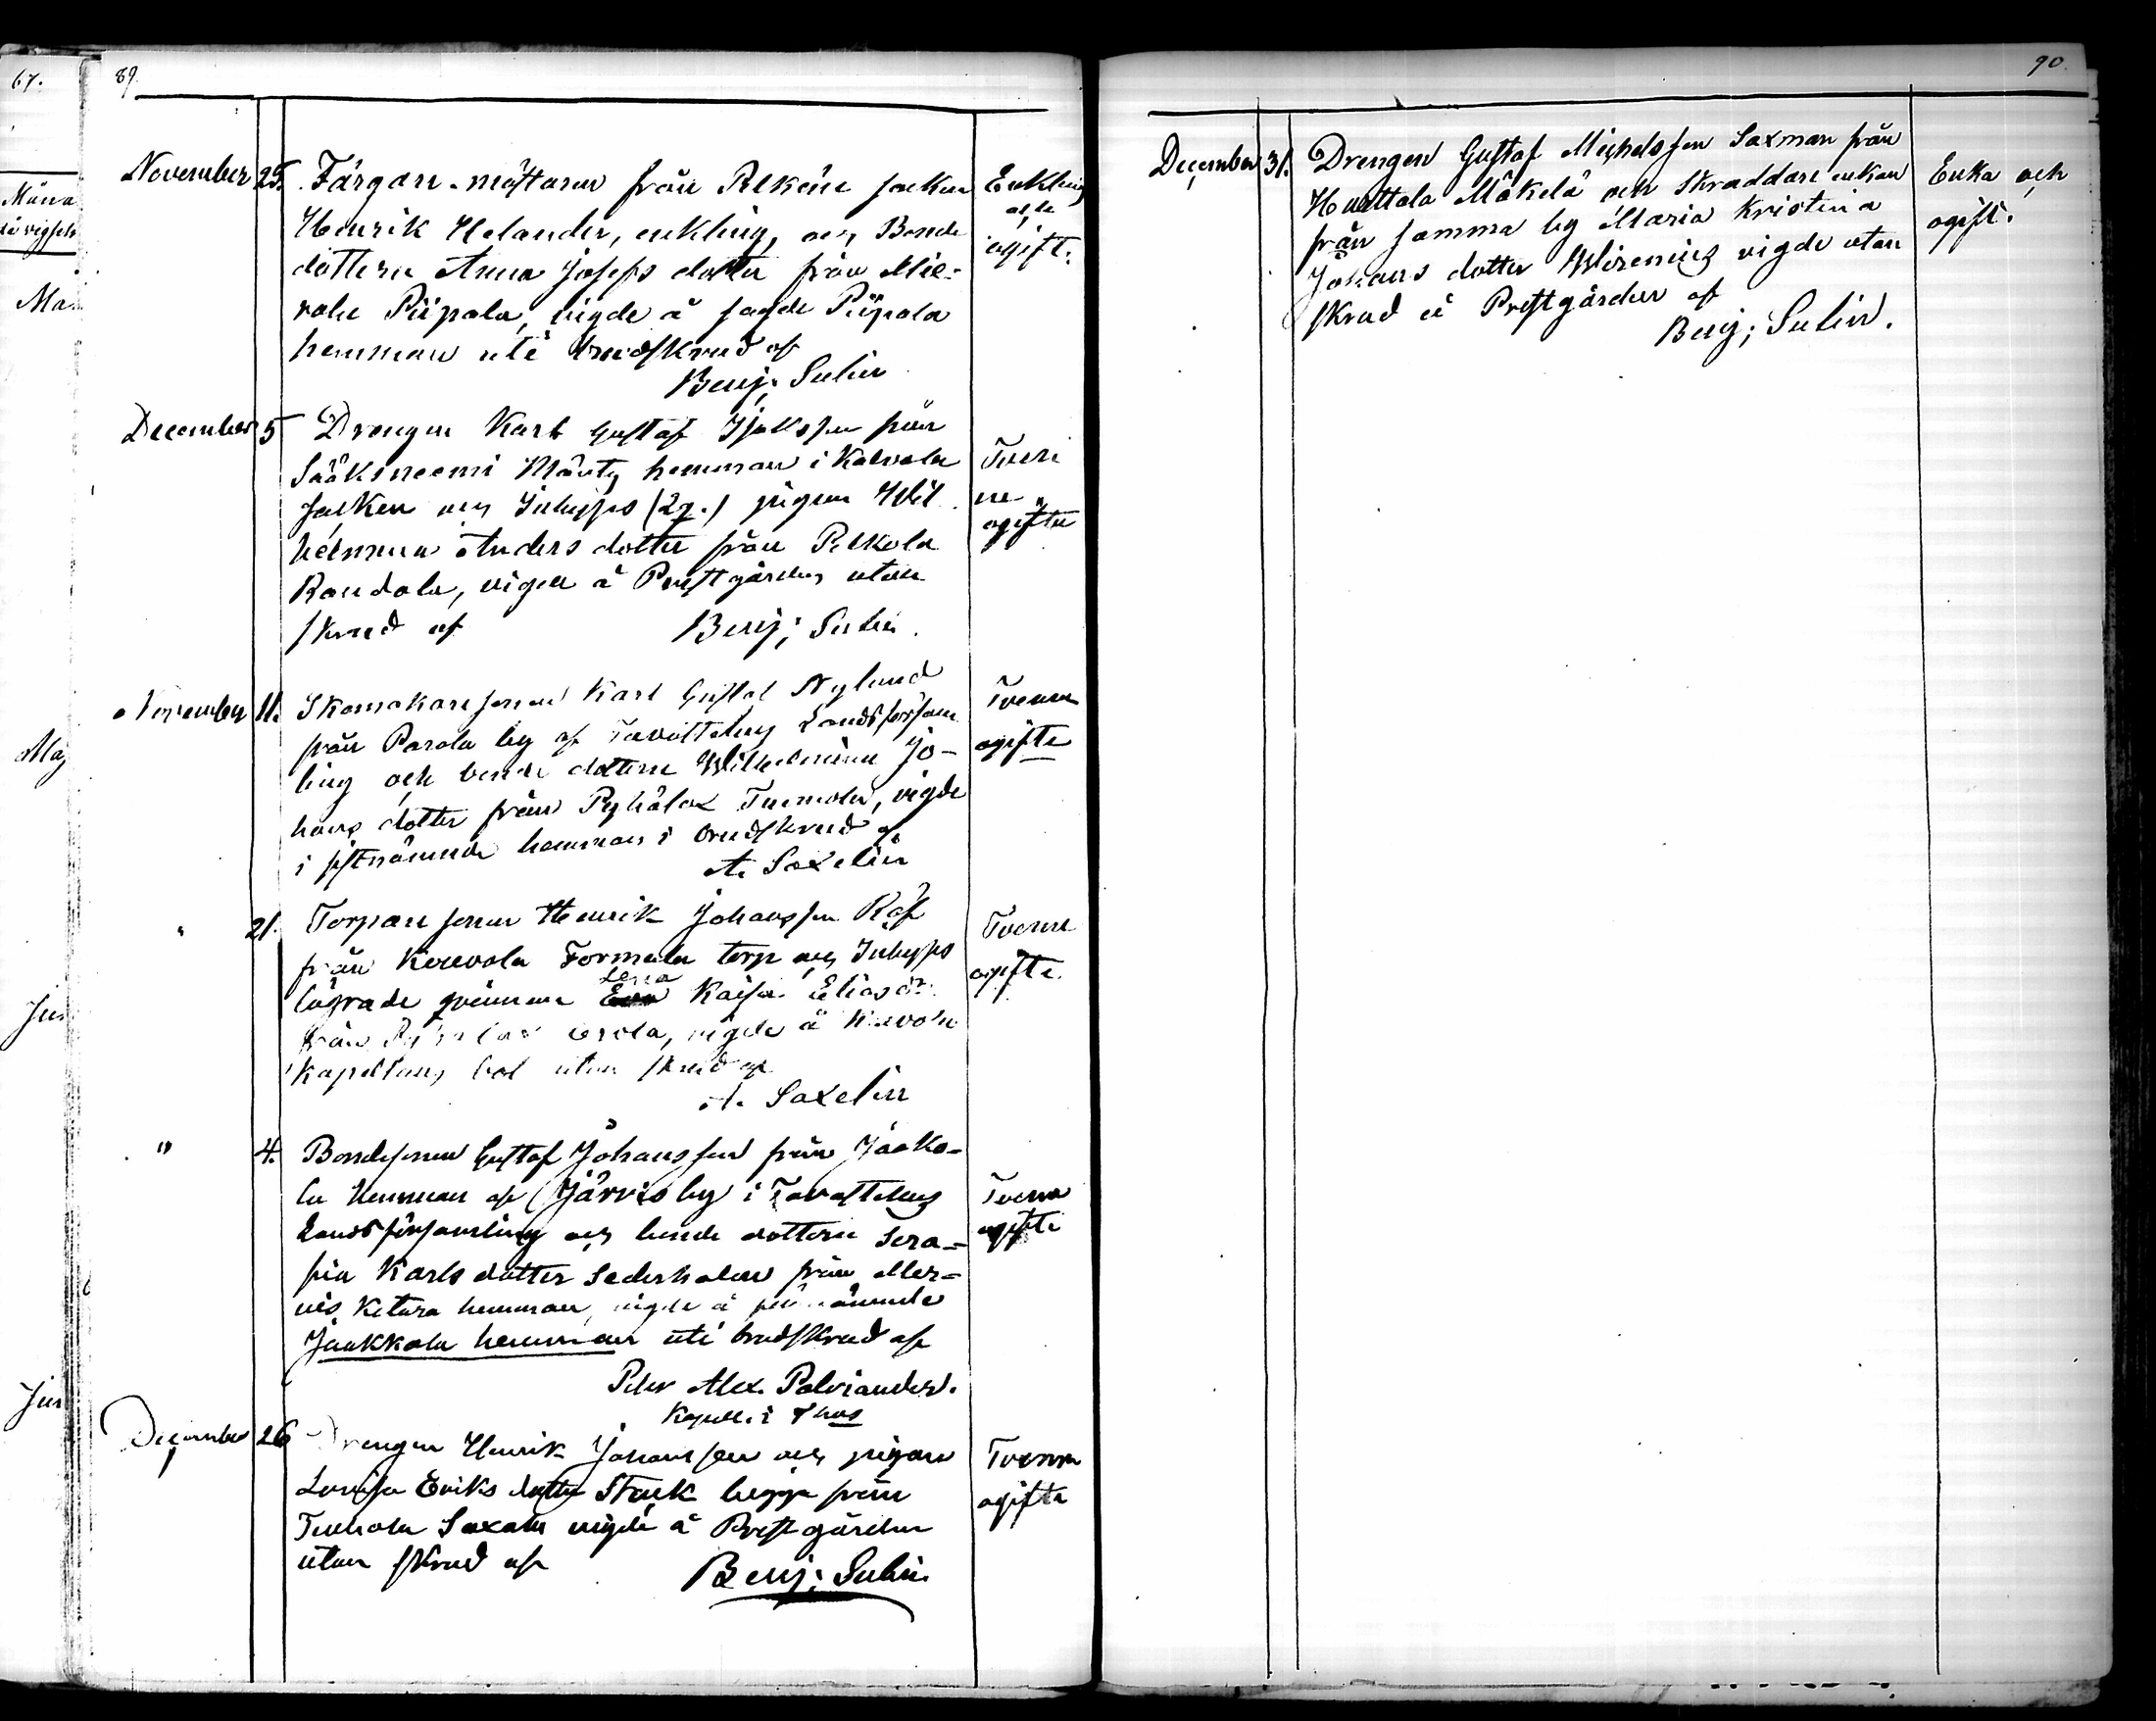 67.
89.
November 25. Färgare-mästaren från Pelkäne socken
Henrik Helander, enkling, och Bonde
dottern Anna Josefs dotter från Mie-
rola Piipola, vigde å sagde Piipola
hemman uti brudskrud af
Benj. Sulin
Enkling
och
ogift.
December 5 Drengen Karl Gustaf Isaksson från
Sääksneemi Mänty hemman i Kalvola
socken och Inhyses (2g.) pigan Wil
helmina Anders dotter från Pelkola
Randala, vigda å Prestgården utan
skrud af Benj; Sulin.
Tven
ne
ogifta
November 11. Skomakare sonen Karl Gustaf Nylund
från Parola by af Tavastehus Landsförsam
ling och bonde dottern Wilhelmina Jo-
hans dotter från Pyhälax Tuomola, vigde
i sistnämnde hemman i brudskrud af
A. Saxelin
Tvenne
ogifte
" 21. Torpare sonen Henrik Johansson Räf
från Kerevola Formula torp och Inhyses
Lena
Kaisa Eliasdr
från Pyhälax Erola, vigde å
Kapellans bol utan skrud af
A. Saxelin
Tvenne
ogifte.
" 4. Bondesonen Gustaf Johansson från Jaako-
la hemman af Järvis by i Tavastehus
Landsförsamling och bonde dottern Sera-
fia Karls dotter Sederholm från Mer-
vis Ketara hemman, vigde å
Jaakkola hemman uti brudskrud af
Peter Alex. Palviander.
Kapell. i Thus
Tvenne
ogifte
December 26 Drengen Henrik Johansson och pigan
Lovisa Eriks dotter Stark begge från
Tuulola Saxala vigde å Prestgården
utan skrud af Benj; Sulin.
Tvenne
ogifta
90.
December 31. Drengen Gustaf Michelsson Saxman från
Huittola Mäkelä och Skraddare enkan
från samma by Maria Kristina
Johans dotter Wirenius vigde utan
skrud å Prestgården af
Benj; Sulin.
Enka och
ogift.